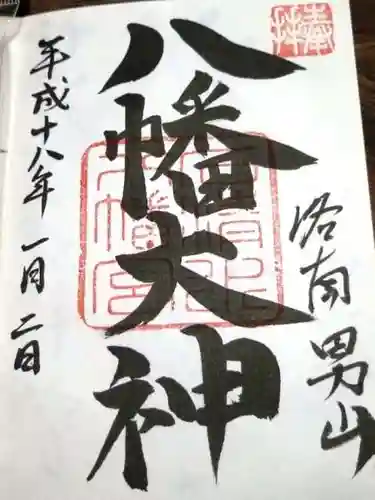 奉拝
洛南男山
八幡大神
平成十八年一月二日